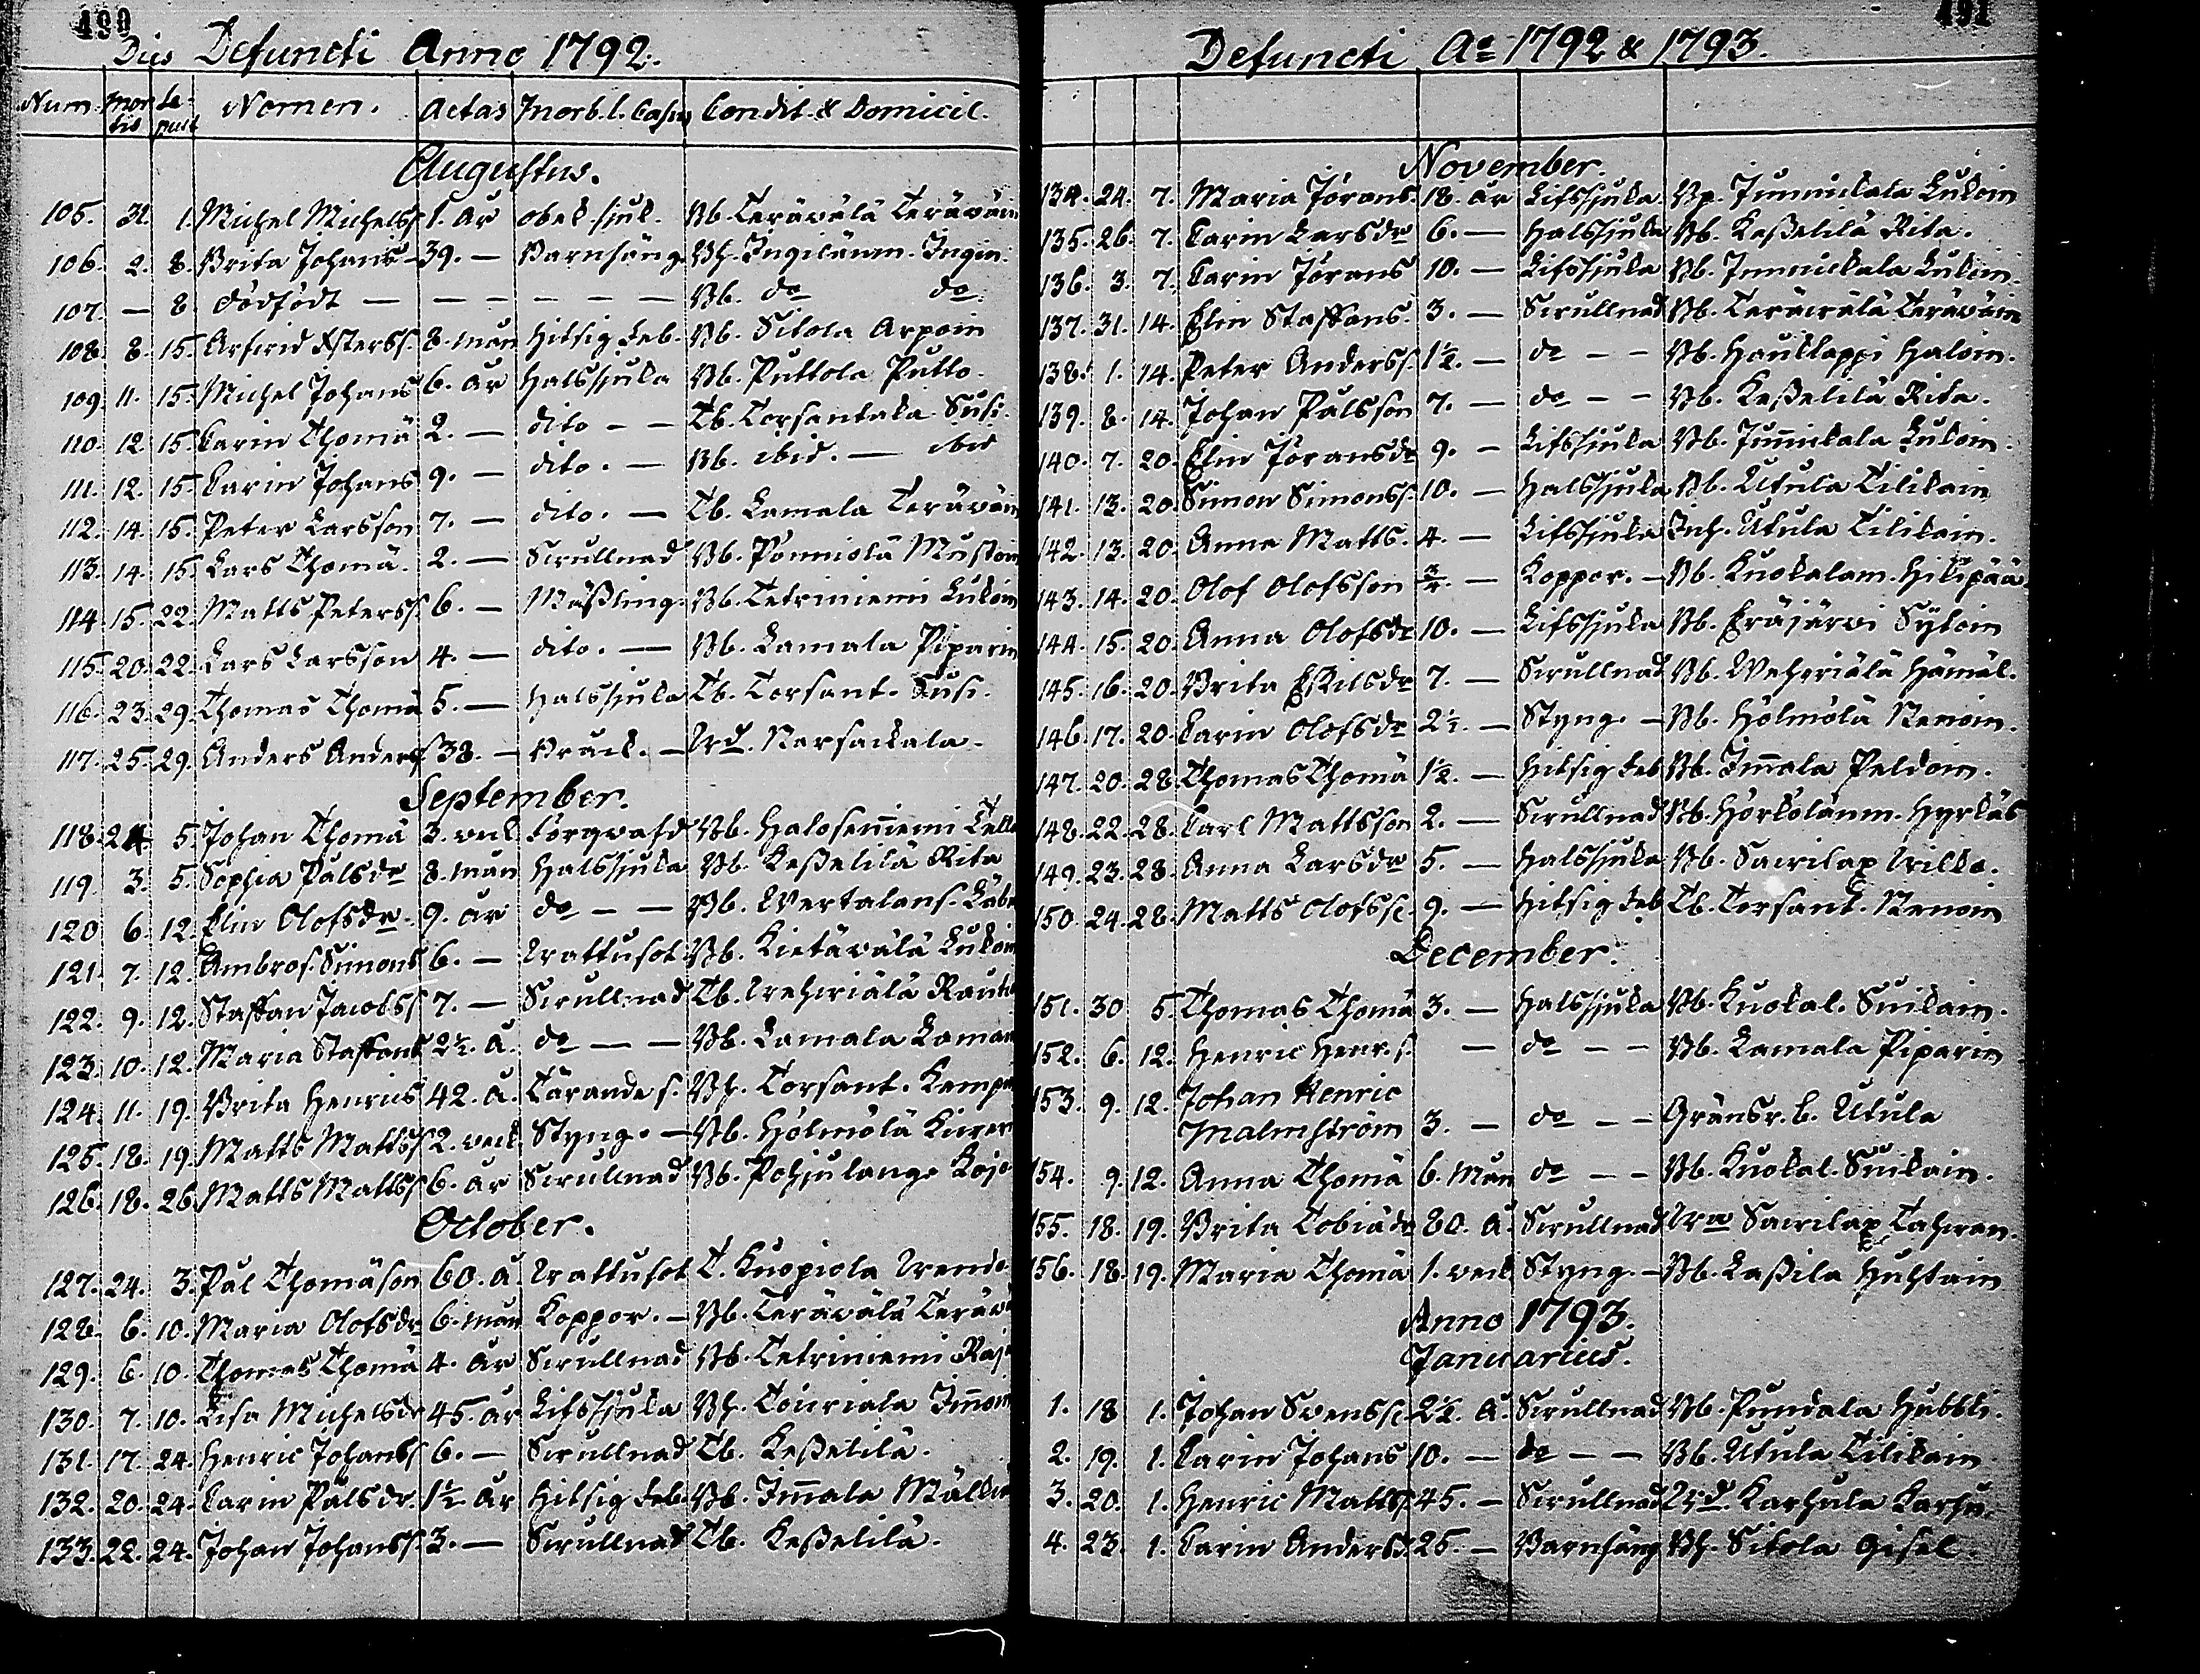 490
Dies Defuncti Anno 1792.
Num. mortis sepult Nomen. Aetas Morb. l. Casus Condit. & Domicil.
Augustus.
105. 31. 1. Michel Michelss 1. år obek. sjuk. Bb. Teräwälä Teräwäin
106. 2. 8. Brita Johans 39. — Barnsäng Bh. Ingilänm. Ingin.
107. — 8. dödfödt — — — — — — Bb. do do
108. 8. 15. Arfwid Esterss. 8. mån hitsig feb. Bb. Sitola Arpoin
109. 11. 15. Michel Johans 6. år halssjuka Bb. Puttola Putto.
110. 12. 15. Carin Thomä 2. — dito — — Tb. Torsantaka Susi.
111. 12. 15. Carin Johans 9. — dito. — Bb. ibid. — ibid
112. 14. 15. Peter Larsson 7. — dito. — Tb. Lamala Teräwäin
113. 14. 15. Lars Thomä. 2. — Swullnad Bb. Pönniölä Mustoin
114. 15. 22. Matts Peterss. 6. — Mäßling. Bb. Tetriniemi Lukoin
115. 20. 22. Lars Larsson 4. — dito. — Bb. Lamala Piparin
116. 23. 29. Thomas Thomä 5. — halssjuka Tb. Torsant. Susi.
117. 25. 29. Anders Anderss 38. — Bråck. —
September.
118. 24. 5. Johan Thomä 3. veck. torrwärk Bb. Halosenniemi
119. 3. 5. Sophia Pålsdr 8. mån halssjuka Bb. Keßelilä Rita
120. 6. 12. Elin Olofsdr. 9. år do — — Bb.
121. 7. 12. Ambros. Simons 6. — Wattusot Bb. Kietäwälä Lukoin
122. 9. 12. Staffan Jacobss 7. — Swullnad Tb.
123. 10. 12. Maria Staffans 2½. å. do — — Bb. Lamala
124. 11. 19. Brita Henrics 42. å. Tärande s. Bh. Torsant. Kemp
125. 18. 19. Matts Mattss 2. veck. Styng. — Bb. Hölmölä
126. 18. 26. Matts Mattss 6. år Swullnad Bb. Pohjulang. Kojo
October.
127. 24. 3. Pål Thomäson 60. å. Wattusot T. Kuopiola
128. 6. 10. Maria Olofsdr 6. mån Koppor. — Bb. Teräwälä Teräw
129. 6. 10. Thomas Thomä 4. år Swullnad Bb. Tetriniemi
130. 7. 10. Lisa Michelsdr 45. år Lifssjuka Bh.
131. 17. 24. Henric Johanss 6. — Swullnad Tb. Keßelilä.
132. 20. 24. Carin Pålsdr. 1½ år hitsig feb. Bb. Immala
133. 22. 24. Johan Johanss. 3. — Swullnad Tb. Keßelilä.
491
Defuncti Ao 1792 & 1793.
November.
134. 24. 7. Maria Jörans. 18. år Lifssjuka. Bp. Junnickala Lukoin
135. 26. 7. Carin Larsdr 6. — halssjuka Bb. Keßelilä Rita.
136. 3. 7. Carin Jörans 10. — Lifssjuka Bb. Junnickala Lukoin.
137. 31. 14. Elin Staffans. 3. — Swullnad Bb. Teräwälä Teräwäin
138. 1. 14. Peter Anderss. 1½. — do — — Bb. Hauklappi Haloin.
139. 8. 14. Johan Pålsson 7. — do — — Bb. Keßelilä Rita.
140. 7. 20. Elin Jöransdr 9. — Lifssjuka Bb. Junnikala Lukoin.
141. 13. 20. Simon Simonss. 10. — halssjuka Bb. Utula Tilikain
142. 13. 20. Anna Matts. 4. — Lifssjuka Inh. Utula Tilikain.
143. 14. 20. Olof Olofsson ¾. — Koppor. — Bb. Kuokalam. Hilipää
144. 15. 20. Anna Olofsdr 10. — Lifssjuka Bb. Eräjärwi Sytoin
145. 16. 20. Brita Eskilsdr 7. — Swullnad Bb. Wehwiälä Hämäl.
146. 17. 20. Carin Olofsdr 2½. — Styng. — Bb. Hölmölä Nenoin.
147. 20. 28. Thomas Thomä 1½. — hitsig feb Bb. Immala Peldoin.
148. 22. 28. Carl Mattsson 2. — Swullnad Bb. Hörkölänm. Hyrkäs
149. 23. 28. Anna Larsdr 5. — halssjuka Bb. Sawilax Wilko.
150. 24. 28. Matts Olofss. 9. — hitsig feb Tb. Torsant. Nenoin
December.
151. 30 5. Thomas Thomä 3. — halssjuka Bb. Kuokal. Suikain.
152. 6. 12. Henric Henr. s. — do — — Bb. Lamala Piparin
153. 9. 12. Johan Henric
Malmström 3. — do — — Gränsr. b. Utula
154. 9. 12. Anna Thomä 6. mån do — — Bb. Kuokal. Suikain.
155. 18. 19. Brita Tobiädr 80. å. Swullnad Sawilax
156. 18. 19. Maria Thomä 1. veck Styng. — Bb. Laßila Huhtain
Anno 1793.
Januarius.
1. 18 1. Johan Svenss. 2½. å. Swullnad Bb. Pundala
2. 19. 1. Carin Johans 10. — do — — Bb. Utula Tilikain
3. 20. 1. Henric Mattss. 45. — Swullnad Karhula Karhu.
4. 23. 1. Carin Andersd. 25. — Barnsäng Bh. Sitola Gisel.